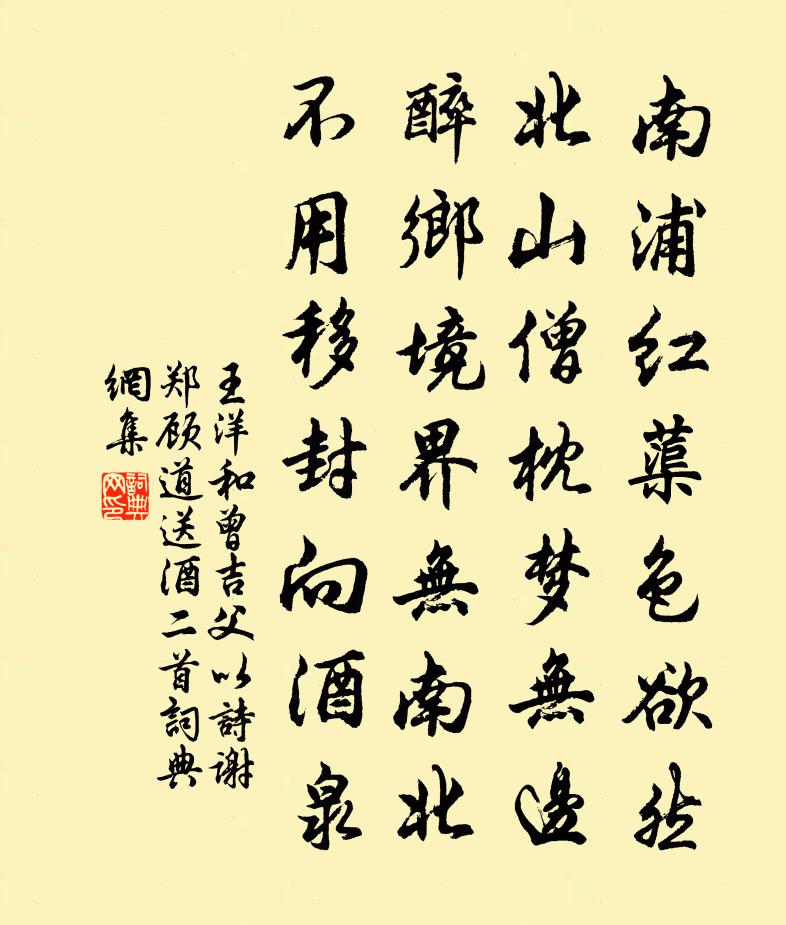 南浦红蕖色欲然
北山僧枕梦無邊
醉鄉境界無南北
不用移封向酒泉
王洋和曾吉父以詩谢
郑顾道送酒二首詞典
網集
詞典
网印